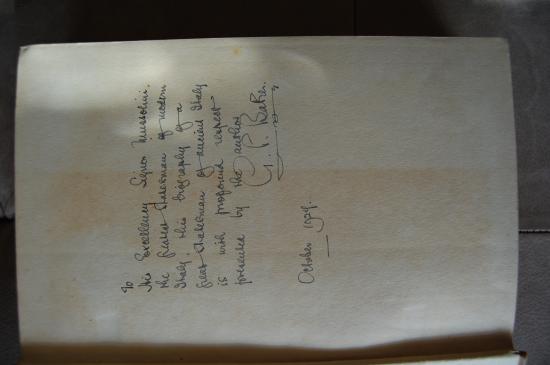 To
His Excellency Signor Mussolini.
the greatest statesman of modern
Italy, this biography of a
great statesman of ancient Italy
is with profound respect
presented by the author
G. P. Baker.
October 1929.